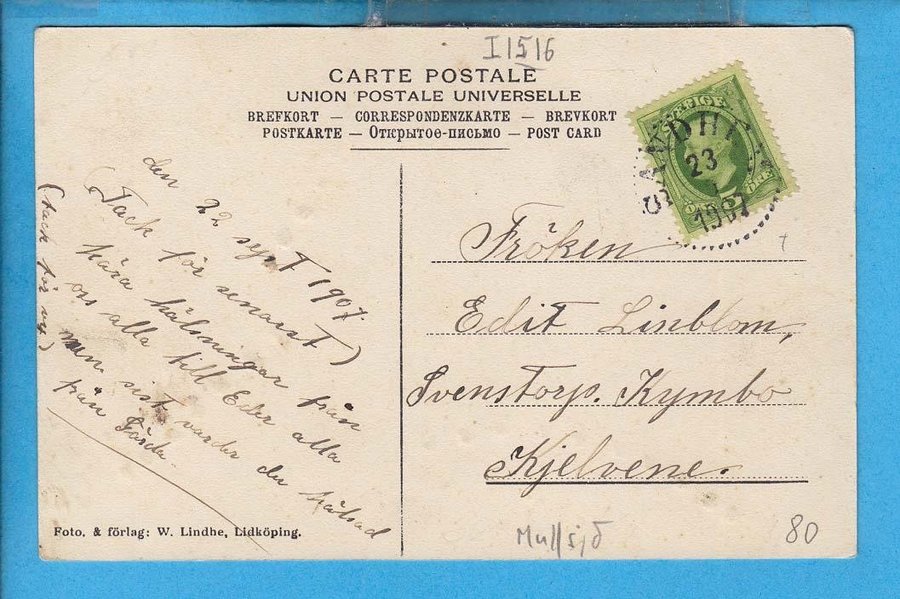 I1516
CARTE POSTALE
UNION POSTALE UNIVERSELLE
BREFKORT — CORRESPONDENZKARTE — BREVKORT
POSTKARTE — Открытое-письмо — POST CARD
SVERIGE
5
ÖRE
SANDH
23
1907
den 22 sept 1907.
(Tack för senarst)
kära hälsningar från
oss alla till Eder alla
men sist varder du hälsad
från
(tack för vy)
Fröken
Edit Linblom,
Svenstorp. Kymbo
Kjelvene.
Foto. & förlag: W. Lindhe, Lidköping.
Mullsjö
80